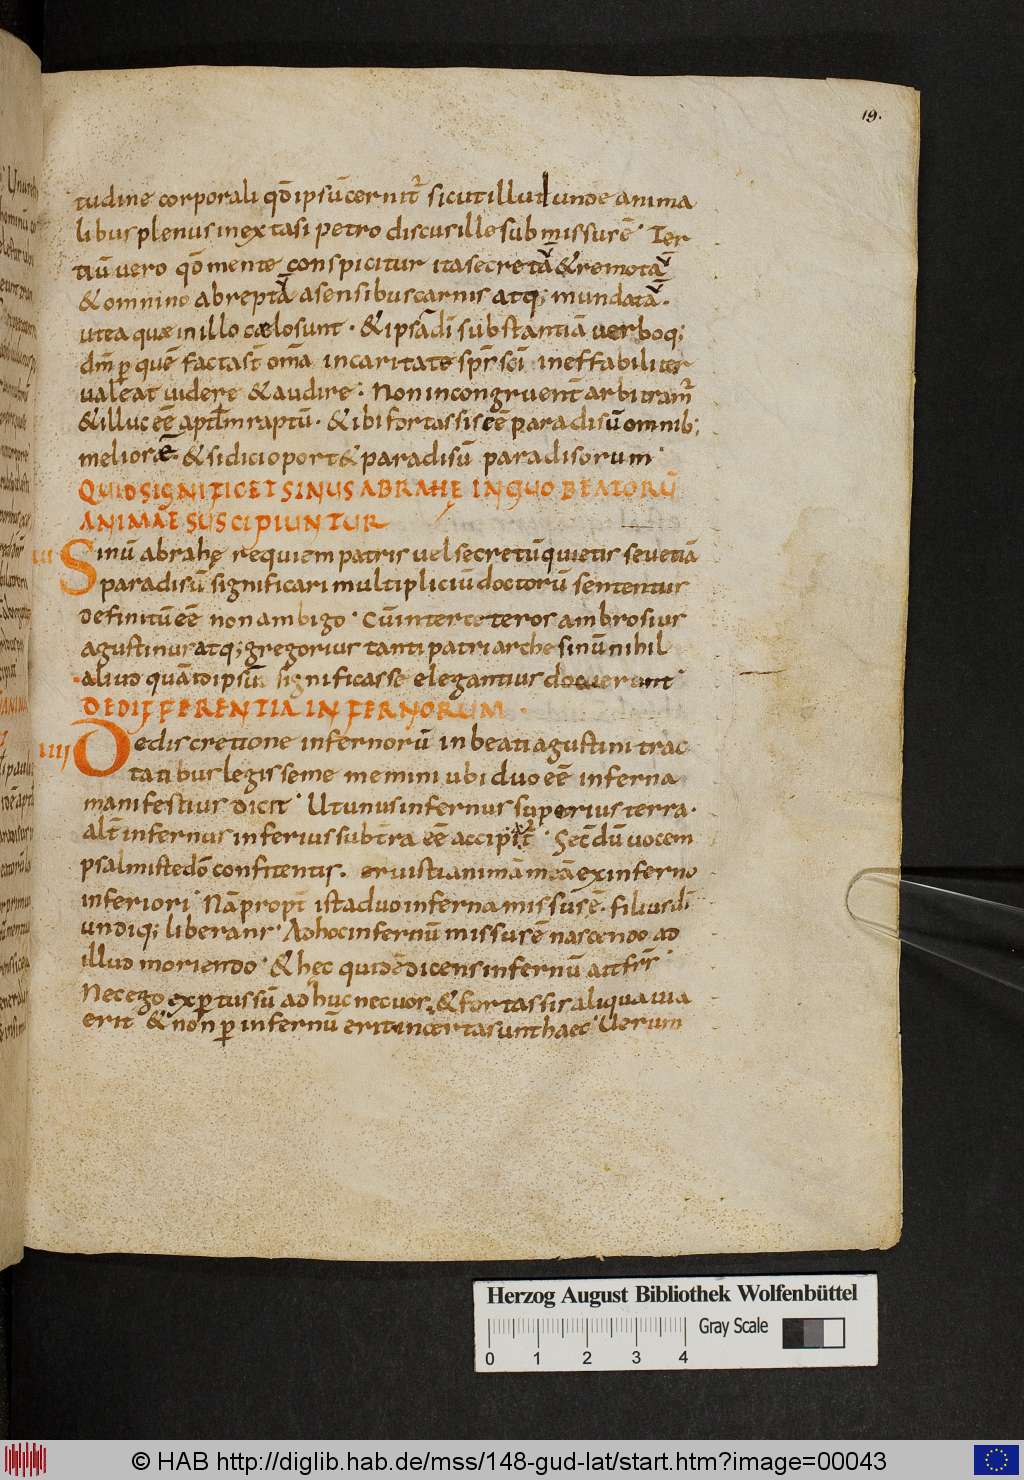 19.
tudine corporali qđ ipsū cernit̄ sicut illud unde anima
libus plenus in extasi petro discus ille submissus ē. Ter
tiū vero qđ mente conspicitur ita secreta & remota
& omnino abrepta a sensibus carnis atq; mundata.
ut ea quae in illo caelo sunt. & ipsā dī substantiā verboq;
dm̄ ꝑ quē facta sт̄ om̄a in caritate sp̄s sc̄i ineffabiliter
valeat videre & audire. Non incongruent̄ arbitram̄
& illuc eē aptl̄m raptū. & ibi fortassis eē paradisū omnib;
meliorē. & si dici oport& paradisū paradisorum.
QUID SIGNIFICET SINUS ABRAHĘ IN QUO BEATORŪ
ANIMAE SUSCIPIUNTUR
III Sinū abrahę requiem patris vel secretū quietis seu etiā
paradisū significari multipliciū doctorū sententiis
definitū eē non ambigo. Cū inter ceteros ambrosius
agustinus atq; gregorius tanti patriarche sinū nihil
aliud quā id ipsū significasse elegantius docuerunt.
DE DIFFERENTIA INFERNORUM.
IIII De discretione infernorū in beati agustini trac
tatibus legisse me memini ubi duo eē inferna
manifestius dicit. Ut unus infernus superius terra.
alt̄ infernus inferius sub t̄ra eē accipit̄. Sec̄dū vocem
psalmiste dō confitentis. eruisti animā meā ex inferno
inferiori. Nā propt̄ ista duo inferna missus ē. filius dī
undiq; liberans. Ad hoc infernū missus ē nascendo ad
illud moriendo. & hęc quidē dicens infernū ait frs̄.
Nec ego expertus sū adhuc nec vos. & fortassis alia via
erit & non ꝑ infernū erit incerta sunt haec. Verum
Herzog August Bibliothek Wolfenbüttel
Gray Scale
0 1 2 3 4
© HAB http://diglib.hab.de/mss/148-gud-lat/start.htm?image=00043